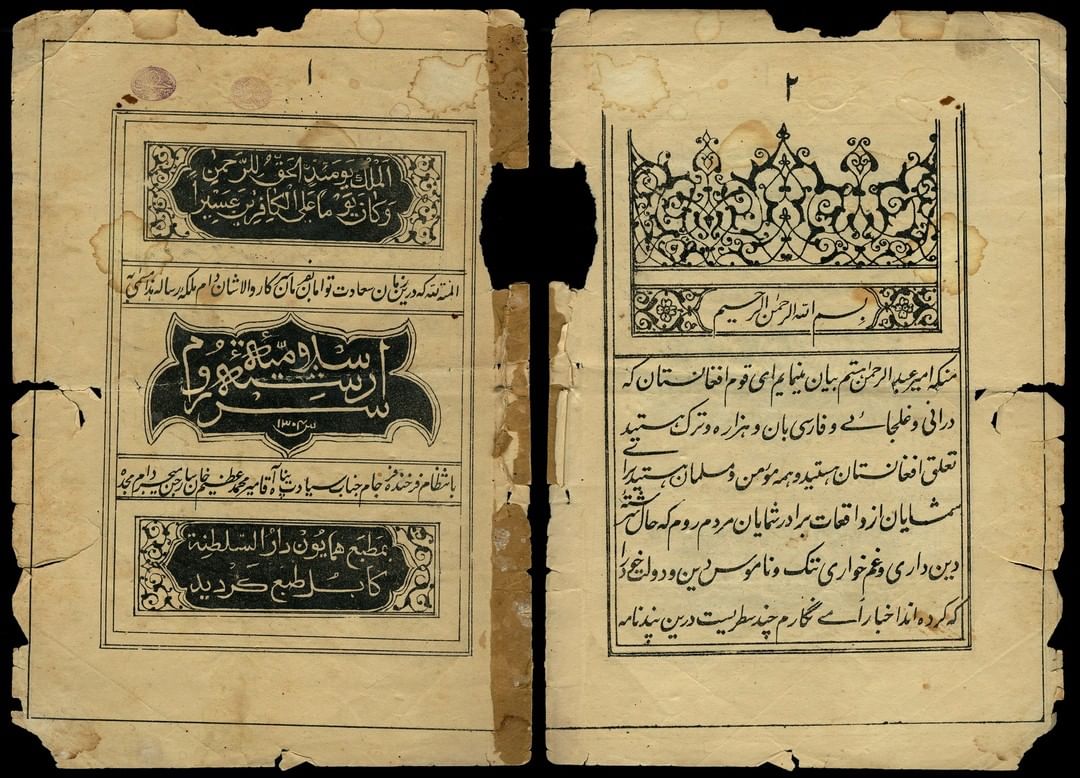 ١
الملك يومئذ الحق للرحمن
وكان يوما على الكافرين عسيرا
المنة لله که درین زمان سعادت توامان بفرمان سرکار والاشان دام ملکه رساله هذا مسمی به
سررشتهٔ اسلامیهٔ روم
سنه ۱۳۰۴
بانتظام فرخنده فرجام جناب سیادت پناه آقا میر محمد عظیم خان سارجن میجر دام مجده
بمطبع همایون دار السلطنة
کابل طبع گردید
٢
بسم الله الرحمن الرحیم
منکه امیر عبدالرحمن هستم بیان مینمایم ای قوم افغانستان که
درانی و غلجائے و فارسی بان و هزاره و ترک هستید
تعلق افغانستان هستید و همه مؤمن و مسلمان هستید برای
شمایان از واقعات برادر شمایان مردم روم که حال
دین داری و غم خواری ننگ و ناموس دین و دولت خود را
که کرده اند اخبار نگارم چند سطریست درین پندنامه